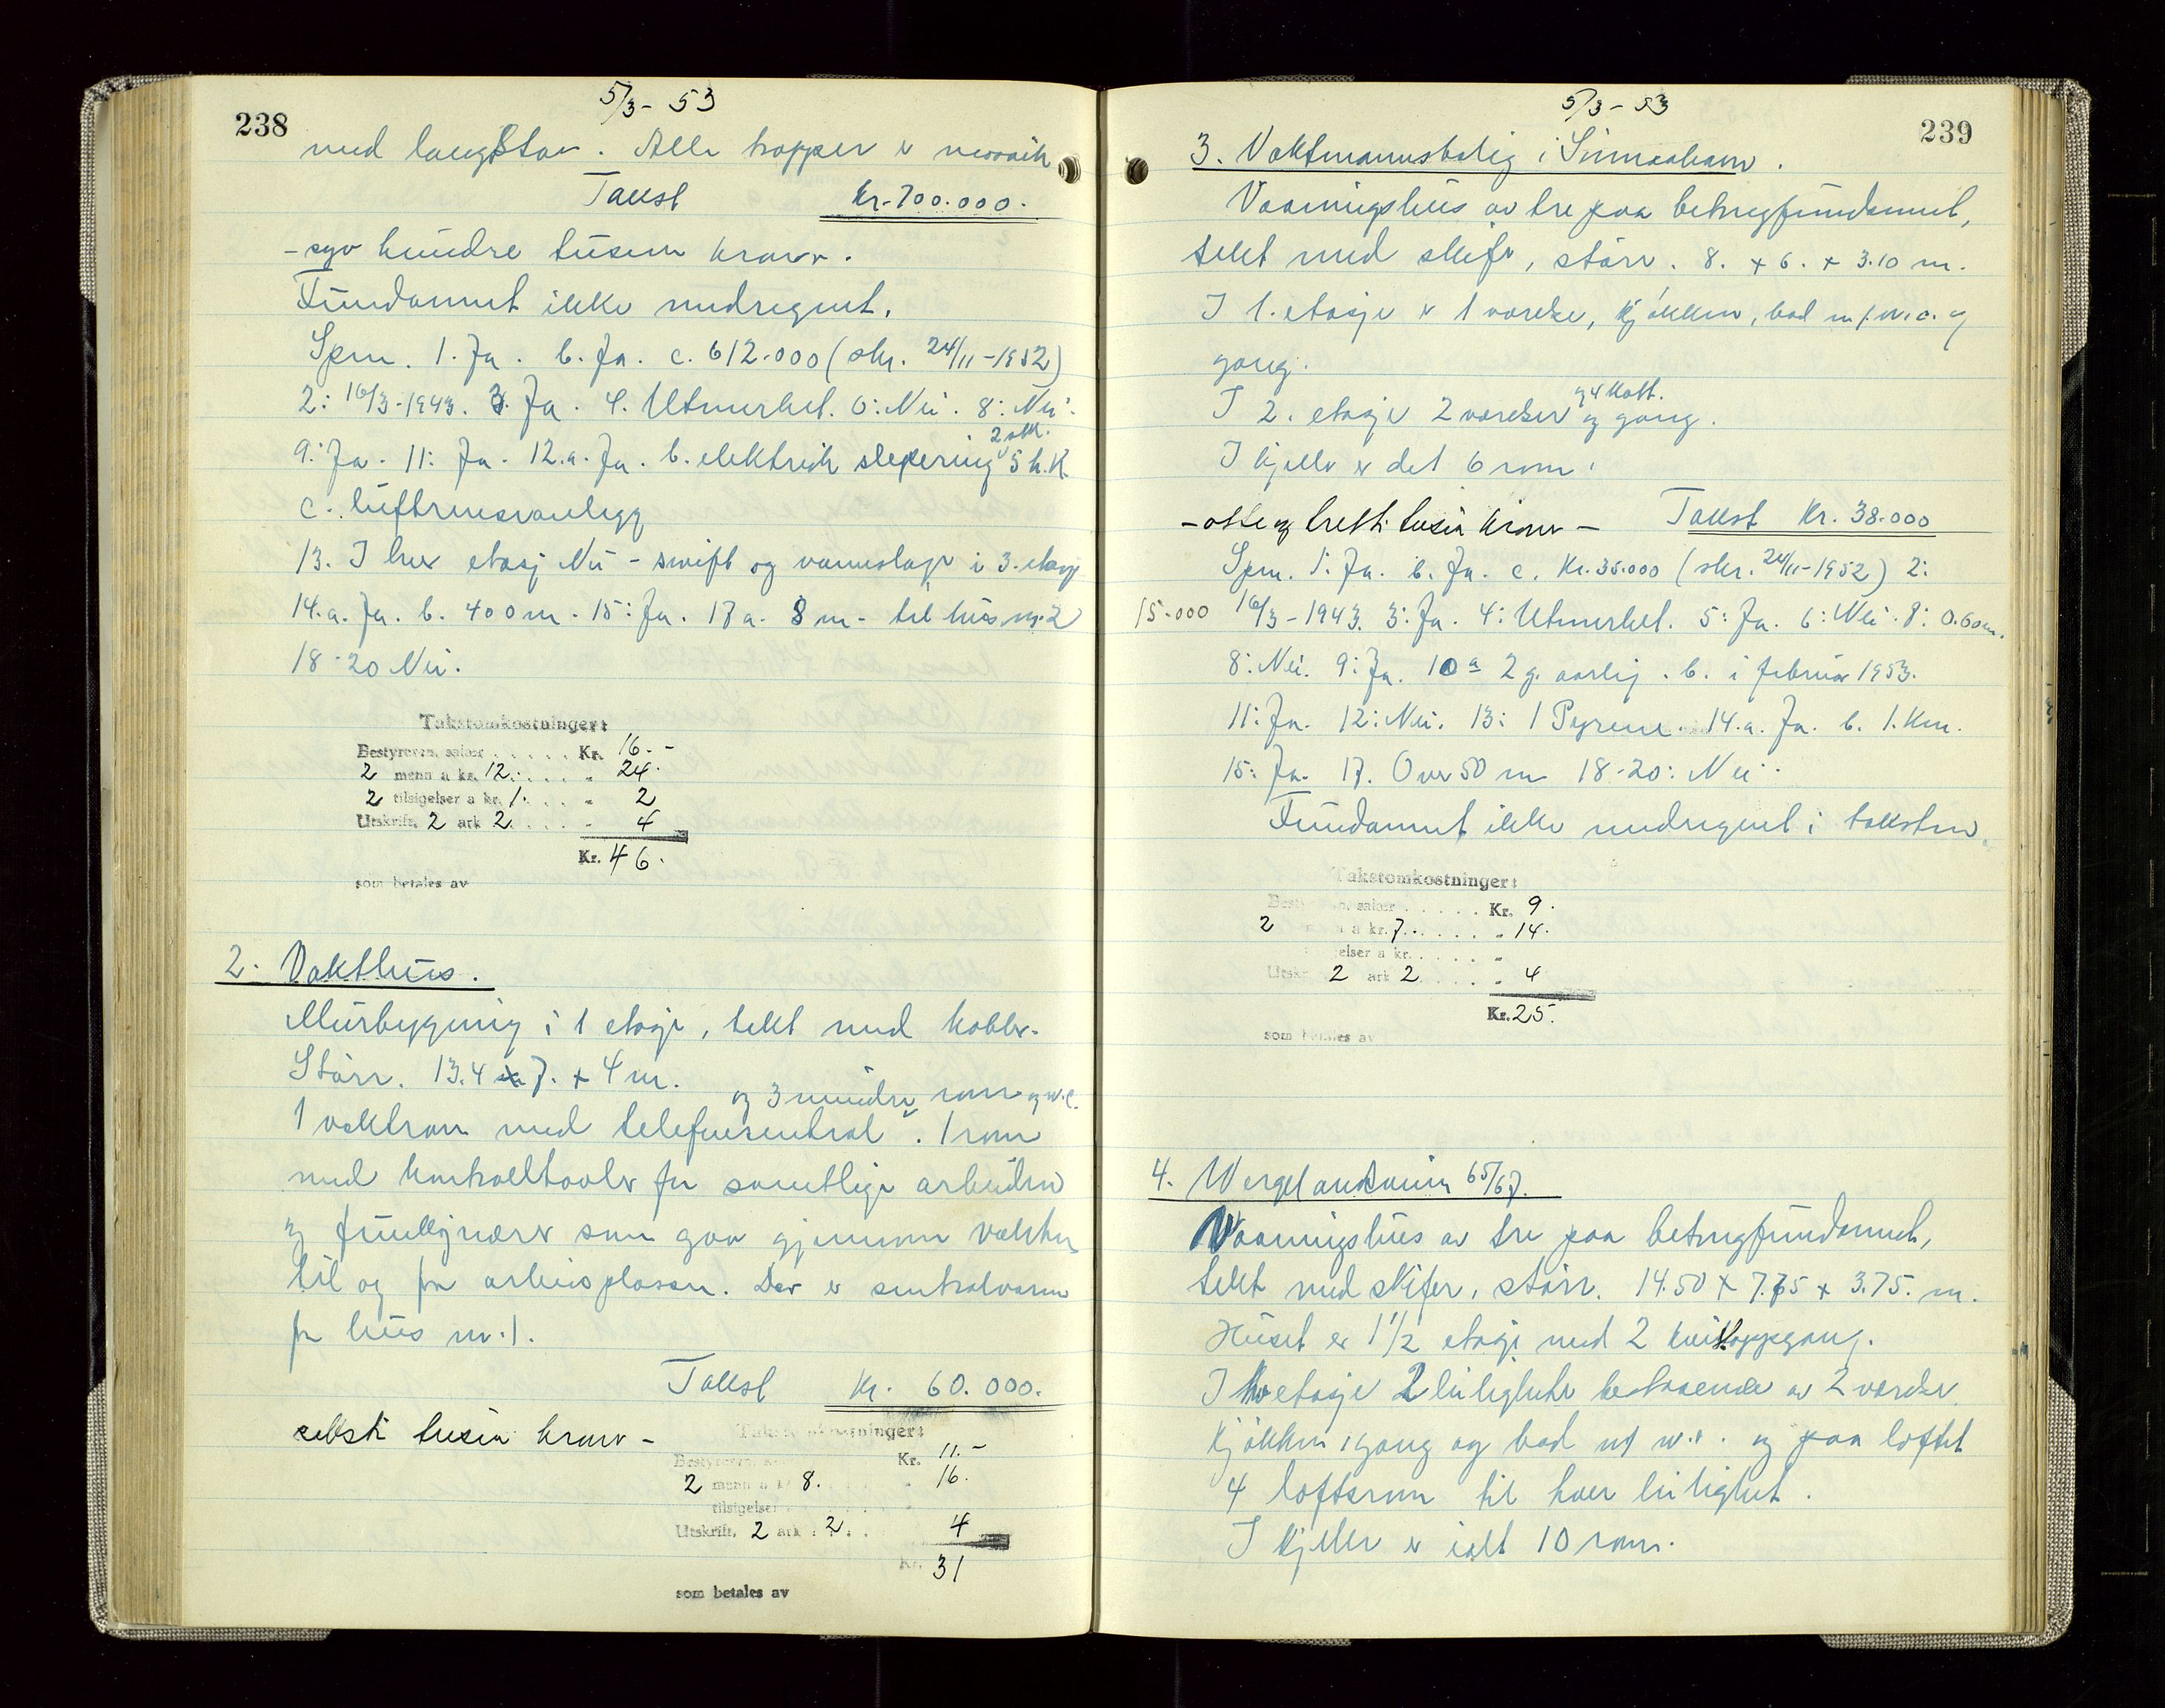 238
5/3- 53
med langstav. Alle trapper er massiv
Takst Kr. 700.000.
- syv hundre tusen kroner.
Fundamentet ikke medregnet.
Spm. 1. Ja. b. Ja. c. 612.000 (skr. 24/11-1952)
2: 16/3-1943. 3. Ja. 4. Utmerket. 6: Nei. 8: Nei.
2 stk.
9: Ja. 11: Ja. 12.a. Ja. b. elektrisk 5 h.K.
c. luftrensvanlegg
13. I hver etasj Nei - og i 3. etasje
14.a. Ja. b. 400 m. 15: Ja. 17 a. 8 m. til hus nr. 2
18-20 Nei.
Takstomkostninger:
Bestyreren, salær . . . . . Kr. 16.-
2 menn a kr. 12. . . . . „ 24.
2 tilsigelser a kr. 1. . . . „ 2
Utskrift, 2 ark 2. . . . . „ 4
Kr. 46.
som betales av
2. Vakthus.
Murbygning i 1 etasje, tekt med kobber.
Størr. 13.4 x 7. x 4 m.
og 3 mindre rom og w.c.
1 vaktrom med telefonsentral. 1 rom
med kontrolltavler for samtlige arbeidere
og funksjonærer som gaar gjennom vakten
til og fra arbeidsplassen. Der er sentralvarme
fra hus nr. 1.
Takst Kr. 60.000.
seksti tusen kroner -
Takstomkostninger:
Bestyreren, salær Kr. 11.-
2 menn a kr 8. 16.
tilsigelser
Utskrift, 2 ark 2. . . 4
Kr. 31
som betales av
5/3- 53
239
3. Vaktmannsbolig i
Vaaningshus av tre paa betongfundament,
tekt med skifer, størr. 8. x 6. x 3.10 m.
I 1. etasje er 1 værelse, kjøkken, bad m/w.c. og
gang.
og 4 kott.
I 2. etasje 2 værelser og gang.
I kjeller er det 6 rom.
- otte og tretti tusen kroner - Takst Kr. 38.000
Spm. 1: Ja. b. Ja. c. Kr. 35.000 (skr. 24/11-1952) 2:
15.000 16/3-1943. 3: Ja. 4: Utmerket. 5: Ja. 6: Nei. 8: 0.60m.
8: Nei. 9: Ja. 10 a 2 g. aarlig. b. i februar 1953.
11: Ja. 12: Nei. 13: 1 Pyrene. 14.a. Ja. b. 1. Km.
15: Ja. 17. Over 50 m 18-20: Nei.
Fundament ikke medregnet i taksten.
Takstomkostninger:
Bestyreren, salær . . . . . Kr. 9.
2 menn a kr. 7. . . . . „ 14.
tilsigelser a kr. . . . . „
Utskr 2 ark 2. . . . . „ 4
Kr. 25.
som betales av
4. Wergelandsveien 65/67.
Vaaningshus av tre paa betongfundament,
tekt med skifer, størr. 14.50 x 7.75 x 3.75. m.
Huset er 1 1/2 etasje med 2 oppgang.
I hver etasje 2 leiligheter bestaaende av 2 værelser
kjøkken, gang og bad m/ w.c. og paa loftet
4 loftsrom til hver leilighet.
I kjeller er ialt 10 rom.